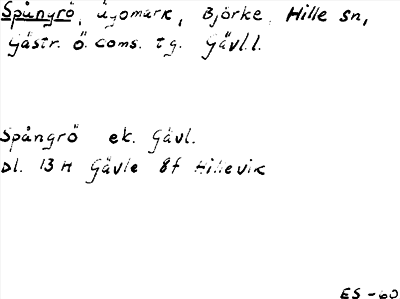 Spångrö, ägomark, Björke, Hille sn,
Gästr. Ö. Doms. tg. Gävl.l.
Spångrö ek. Gävl.
Bl. 13 H Gävle 8f Hillevik
ES-60